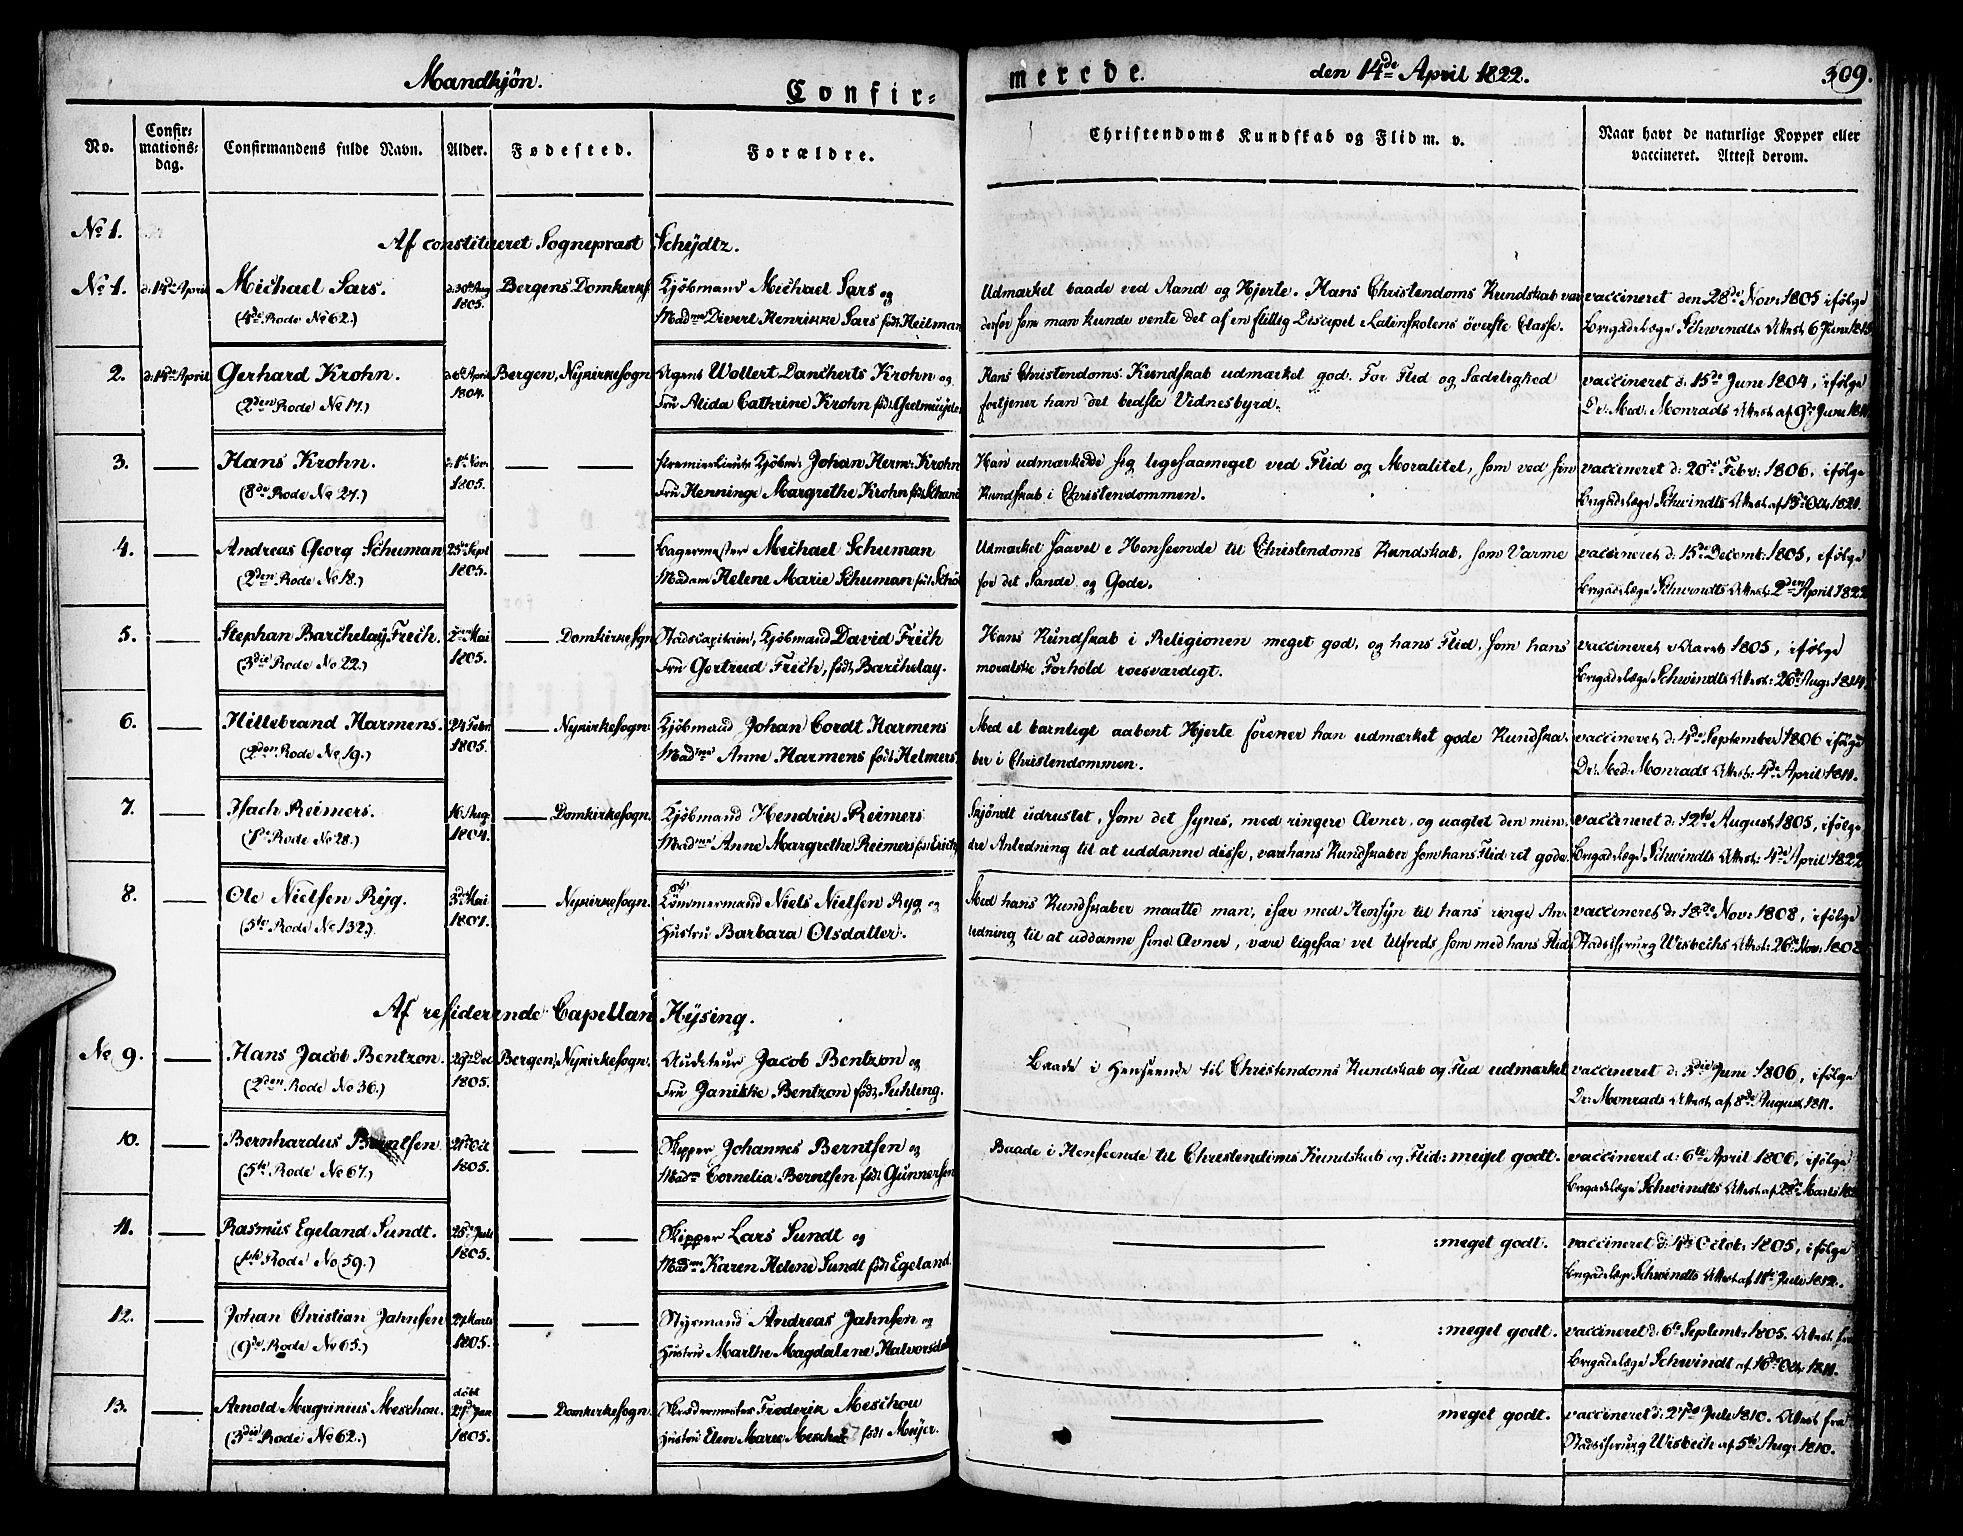 Mandkjøn.
Confir=
merede.
den 14de April 1822.
309.
No.
Confir=
mations=
dag.
Confirmandens fulde Navn.
Alder.
Fødested.
Forældre.
Christendoms Kundskab og Flid m. v.
Naar havt de naturlige Kopper eller
vaccineret. Attest derom.
No 1.
Af constitueret Sognepræst Scheÿdtz.
No 1. d: 14de April Michael Sars. d: 30te Aug Bergens Domkirkes. Kjøbmand Michael Sars og Udmærket baade ved Aand og Hjerte. Hans Christendoms Kundskab var vaccineret den 28de Nov: 1805 ifølge
(4de Rode No 62.) 1805. Madme Divert Henrikke Sars født Heilman derfor som man kunde vente det af en flittig Discipel Latinskolens øverste Classe. Brigadelæge Schwindts Attest 6 Juni
2. d: 14de April Gerhard Krohn. d: 6te April Bergen, Nykirkesogn Agent Wollert Dancherts Krohn og Hans Christendoms Kundskab udmærket god. For Flid og Sædelighed vaccineret d: 15de Juni 1804, ifølge
(2den Rode No 17.) 1804. Fru Alida Cathrine Krohn født Geelmuyden fortjener han det bedste Vidnesbyrd. Dr: Med: Monrads Attest af 9de Juni
3. — Hans Krohn. d: 1te Nov. — — Premierlieut: Kjøbm: Johan Herm: Krohn Han udmærkede sig ligesaameget ved Flid og Moralitet, som ved sin vaccineret d: 20de Febr: 1806, ifølge
(8de Rode No 27.) 1805. Fru Henninge Margrethe Krohn født Kundskab i Christendommen. Brigadelæge Schwindts Attest af 13de Oct: 1820.
4. — Andreas Georg Schuman 25de Sept — — Bagermester Michael Schuman Udmærket saavel i Henseende til Christendoms Kundskab, som Varme vaccineret d: 15de Decemb: 1805, ifølge
(2den Rode No 18.) 1805. Madam Helene Marie Schuman født for det Sande og Gode. Brigadelæge Schwindts Attest: 2den April 1822
5. — Stephan Barchelay Frich. 2den Mai — Domkirkesogn Stadscapitain, Kjøbmand David Frich Hans Kundskab i Religionen meget god, og hans Flid, som hans vaccineret i Aaret 1805, ifølge
(3die Rode No 22.) 1805. Fru Gertrud Frich, født Barchelay. moralske Forhold roesværdigt. Brigadelæge Schwindts Attest: 26de Aug: 1814.
6. — Hillebrand Harmens. 24 Febr — Nykirkesogn. Kjøbmand Johan Cordt Harmens Med et barnligt aabent Hjerte forener han udmærket gode Kundska= vaccineret d: 4de September 1806 ifølge
(2den Rode No 19.) 1805. Madme Anne Harmens født Helmers. ber i Christendommen. Dr: Med: Monrads Attest: 4de April 1811.
7. — Isach Reimers. 16 Aug: — Domkirkesogn. Kjøbmand Hendrik Reimers Skjøndt udrustet, som det synes, med ringere Evner, og uagtet den min= vaccineret d: 12te August 1805, ifølge
(7de Rode No 28.) 1804. Madme Anne Margrethe Reimers født dre Anledning til at uddanne disse, vare hans Kundskaber som hans Flid ret gode. Brigadelæge Schwindts Attest: 4de April 1822
8. — Ole Nielsen Ryg. 3de Mai — Nykirkesogn. Tømmermand Niels Nielsen Ryg og Med hans Kundskaber maatte man, især med Hensyn til hans ringe An= vaccineret d: 18de Nov: 1808, ifølge
(5te Rode No 132.) 1801. Hustru Barbara Olsdatter. ledning til at uddanne sine Evner, være ligesaa vel tilfreds som med hans Flid. Stadschirurg Wisbechs Attest: 26de Nov: 1808
Af residerende Capellan Hÿsing.
No 9. — Hans Jacob Bentzon. Dec Bergen, Nykirkesogn. Auditeur Jacob Bentzon og Baade i Henseende til Christendoms Kundskab og Flid udmærket vaccineret d: 3die Juni 1806, ifølge
(2den Rode No 36.) 1805. Fru Janikke Bentzon født Suhling. Dr: Monrads Attest af 8de August 1811.
10. — Bernhardus Berntsen Oct — — Skipper Johannes Berntsen og Baade i Henseende til Christendoms Kundskab og Flid: meget godt. vaccineret d: 6te April 1806, ifølge
(5te Rode No 67.) 1805. Madme Cornelia Berntsen født Gunnersen Brigadelæge Schwindts Attest af 28de Marts
11. — Rasmus Egeland Sundt. 25de Juli — — Skipper Lars Sundt og — :meget godt. vaccineret d: 4de Octob: 1805, ifølge
(1ste Rode No 59.) 1805. Madme Karen Helene Sundt født Egeland. Brigadelæge Schwindts Attest af 11te Juli 1812.
12. — Johan Christian Jahnsen 27 Marts — — Styrmand Andreas Jahnsen og — :meget godt. vaccineret d: 6te Septemb: 1805. Attest fra
(9de Rode No 65.) 1805. Hustru Marthe Magdalene Halvorsdatt Brigadelæge Schwindt af 16de Oct: 1811.
13. — Arnold Magrinius Meschou. døbt — Domkirkesogn. Skrædermester Frederik Meschou — :meget godt. vaccineret d: 27de Juli 1810. Attest fra
(3die Rode No 62.) 27de Jan 1805. Hustru Elen Marie Meschou født Meÿer. Stadschirurg Wisbech af 5te Aug: 1810.